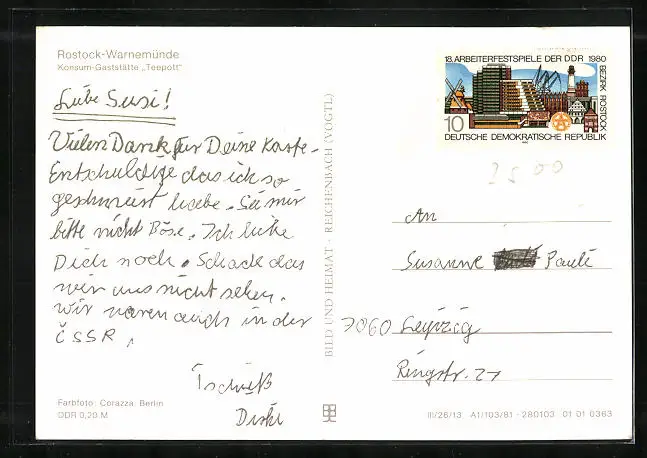 Rostock-Warnemünde
Konsum-Gaststätte „Teepott"
Liebe Susi!
Vielen Dank für Deine Karte.
Entschuldige das ich so
geschmirt habe. Sei mir
bitte nicht Böse. Ich liebe
Dich noch. Schade das
wir uns nicht sehen.
wir waren auch in der
ČSSR.
Tschüß
Farbfoto: Corazza, Berlin
DDR 0,20 M
BILD UND HEIMAT · REICHENBACH (VOGTL)
18. ARBEITERFESTSPIELE DER DDR 1980
BEZIRK ROSTOCK
10
DEUTSCHE DEMOKRATISCHE REPUBLIK
2500
An
Susanne Pauli
7060 Leipzig
Ringstr. 21
III/26/13 A1/103/81 - 280103 01 01 0363